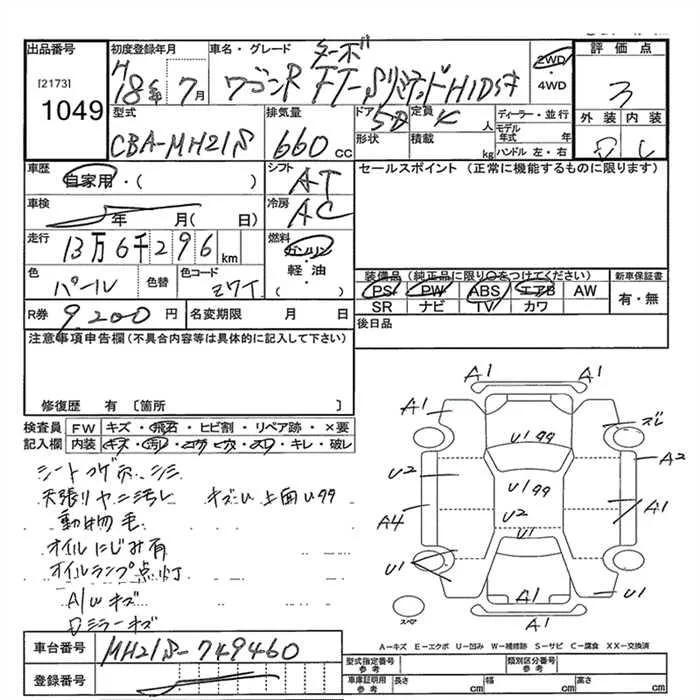 出品番号
[2173]
1049
初度登録年月
H
18年 7月
車名・グレード
ターボ
ワゴンR FT-SリミテッドHID付
2WD
・
4WD
評価点
3
外装 内装
D
型式
CBA-MH21S
排気量
660 CC
ドア
5D
形状
定員
人
積載
kg
ディーラー・並行
モデル年式 年
ハンドル 左・右
車歴
自家用・( )
シフト
AT
セールスポイント (正常に機能するものに限ります)
車検
年 月( 日)
冷房
AC
走行
13万6千296 km
燃料
ガソリン
軽油
( )
色
パール
色替
色コード
ZW7
装備品(純正品に限り○をつけてください)
PS PW ABS エアB AW
SR ナビ TV カワ
新車保証書
有・無
R券
9,200円
名変期限 月 日
後日品
注意事項申告欄(不具合等は具体的に記入して下さい)
修復歴 有 〔箇所 〕
検査員記入欄
FW キズ・飛石・ヒビ割・リペア跡・×要
内装 キズ・汚れ・コゲ・穴・スレ・キレ・破レ
シートコゲ穴 シミ
天張りヤニ汚レ キズU 上面U99
動物毛
オイルにじみ有
オイルランプ点灯
A/Wキズ
Dミラーキズ
A1 A1
A1
ズレ
U199
U2
A2
U199
A4
U2
A1
U1
U1
A1
U1
A1
スペア
A-キズ E-エクボ U-凹み W-補修跡 S-サビ C-腐食 XX-交換済
車台番号
MH21S-749460
登録番号
型式指定番号
参考
類別区分番号
参考
車庫証明用
参考
長さ cm
幅 cm
高さ cm